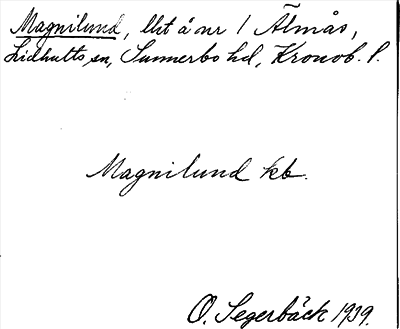 Magnilund, lht å nr 1 Älmås,
Lidhults sn, Sunnerbo hd, Kronob. l.
Magnilund kb.
O. Segerbäck 1939.